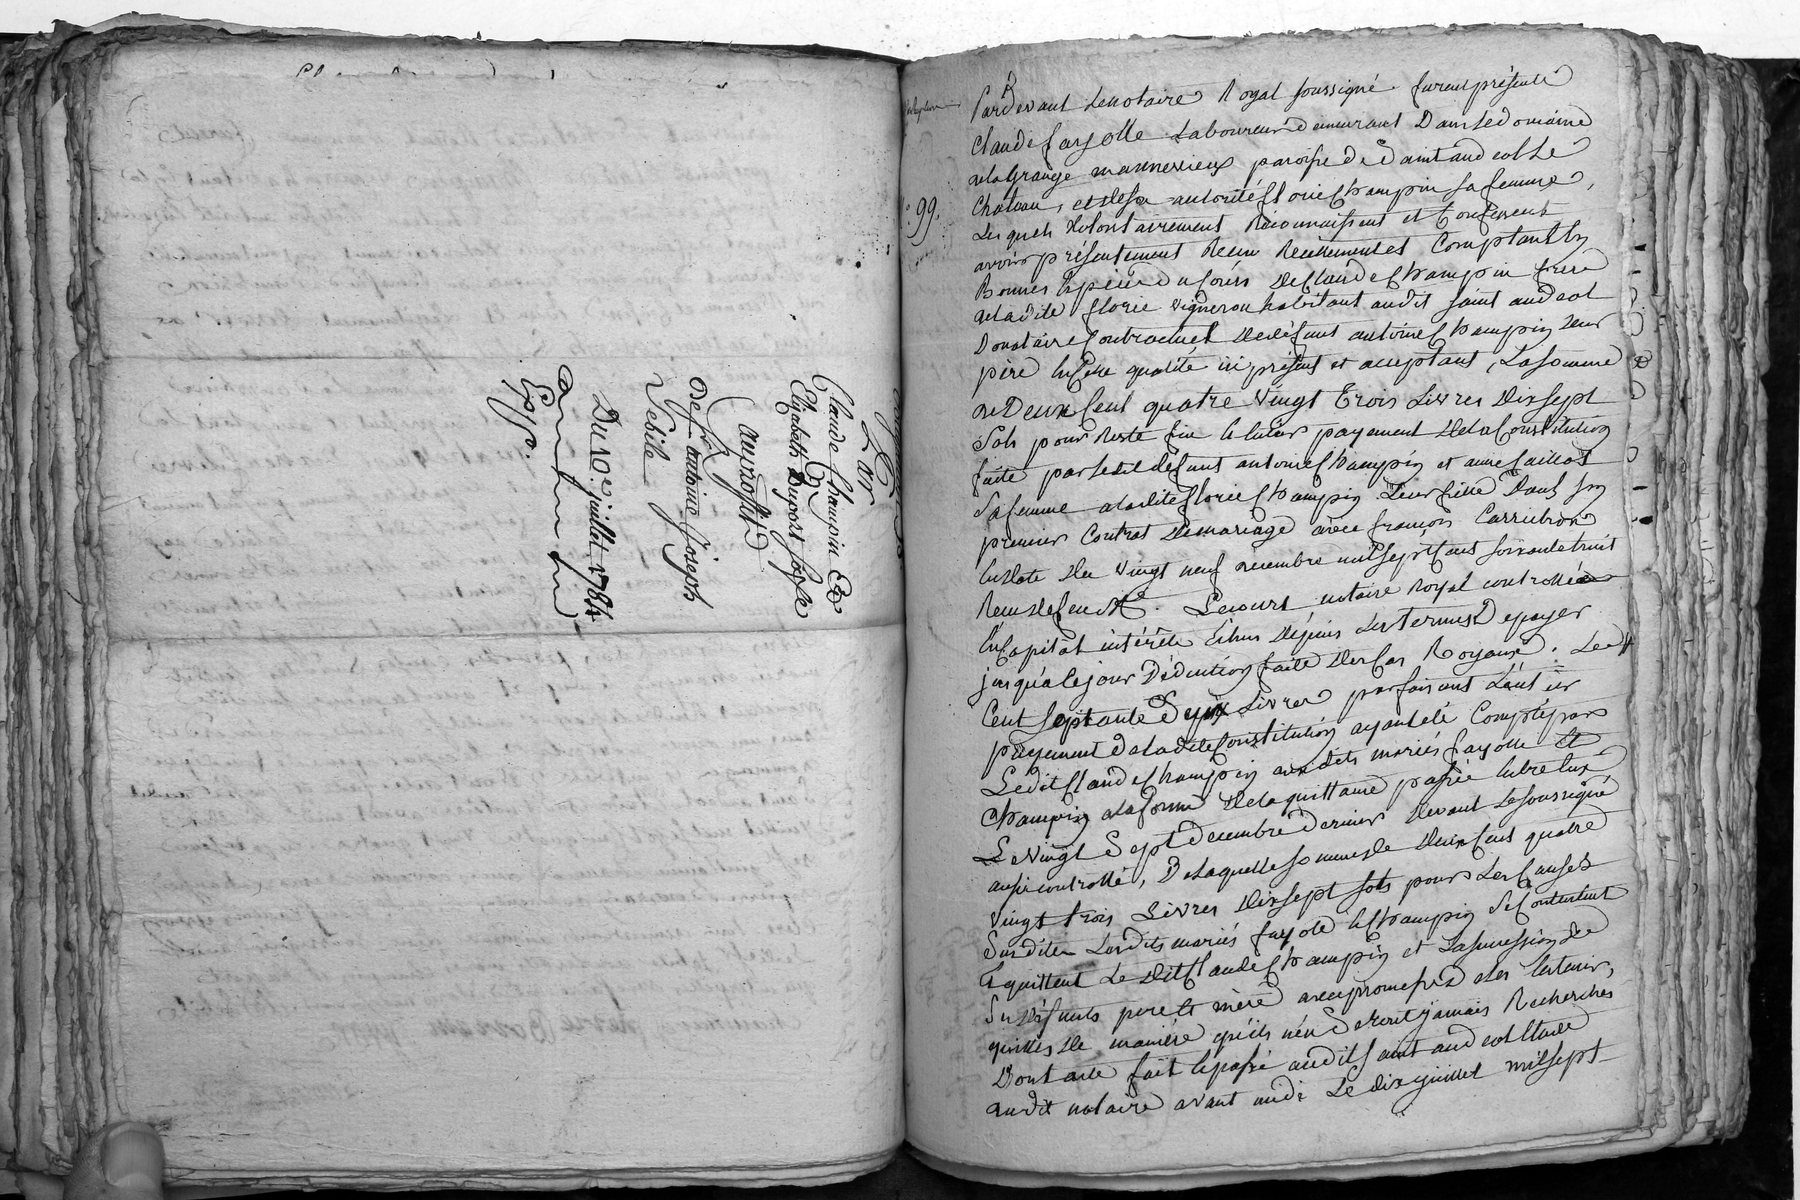 Par
Claude Champin Et
Elizabeth Dupont Sa fe
au proffit D
De Sr antoine Joseph
Sebile
Du 10e. juillet 1784
Exp.
n° 99.
Pardevant Le notaire Royal soussigné. furent présents
Claude fayolle Laboureur demeurant Dans le domaine
de la Grange mannerieux paroisse de Saint andeol le
Chateau, et de son autorité florie Champin sa femme,
Lesquels Volontairement Reconnaissent et Confessent
avoir présentement Recu Reellement et Comptant En
Bonnes Espèces du Cours De Claude Champin frere
de ladite florie vigneron habitant audit saint andeol
Donataire Contractuel De défunt antoine Champin Leur
père En Cette qualité ici présent et acceptant, La somme
de Deux Cent quatre vingt trois Livres Dix sept
Sols pour Reste fin Et entier payement De la Constitution
faite par ledit défunt antoine Champin et anne Caillot
Sa femme a ladite florie Champin Leur fille Dans son
premier Contrat De mariage avec françois Carrichon
En date Du vingt neuf decembre mil sept Cent soixante huit
Recu De feu Me. Lecourt notaire Royal controllé
En Capital intérêts Echus Depuis Les termes De payer
jusqu'à Ce jour Déduction faite Des Cas Royaux. Les
Cent septante Deux Livres parfaisant L'entier
payement De ladite Constitution ayant été Comptés par
Ledit Claude Champin auxdits mariés fayolle Et
Champin a la forme De la quittance passée Entre Eux
Le vingt Sept decembre Dernier Devant Le soussigné
aussi controllé, De laquelle somme de Deux Cent quatre
vingt trois Livres Dix sept sols pour Les Causes
Susdites Lesdits mariés fayolle et Champin se Contentent
Et quittent Le dit Claude Champin et La succession De
Ses défunts père Et mère avec promesse De Les En tenir
quittes De manière qu'ils n'en Seront jamais Recherchés
Dont acte fait Et passé audit saint andeol Etude
dudit notaire avant midi Le dix juillet mil sept